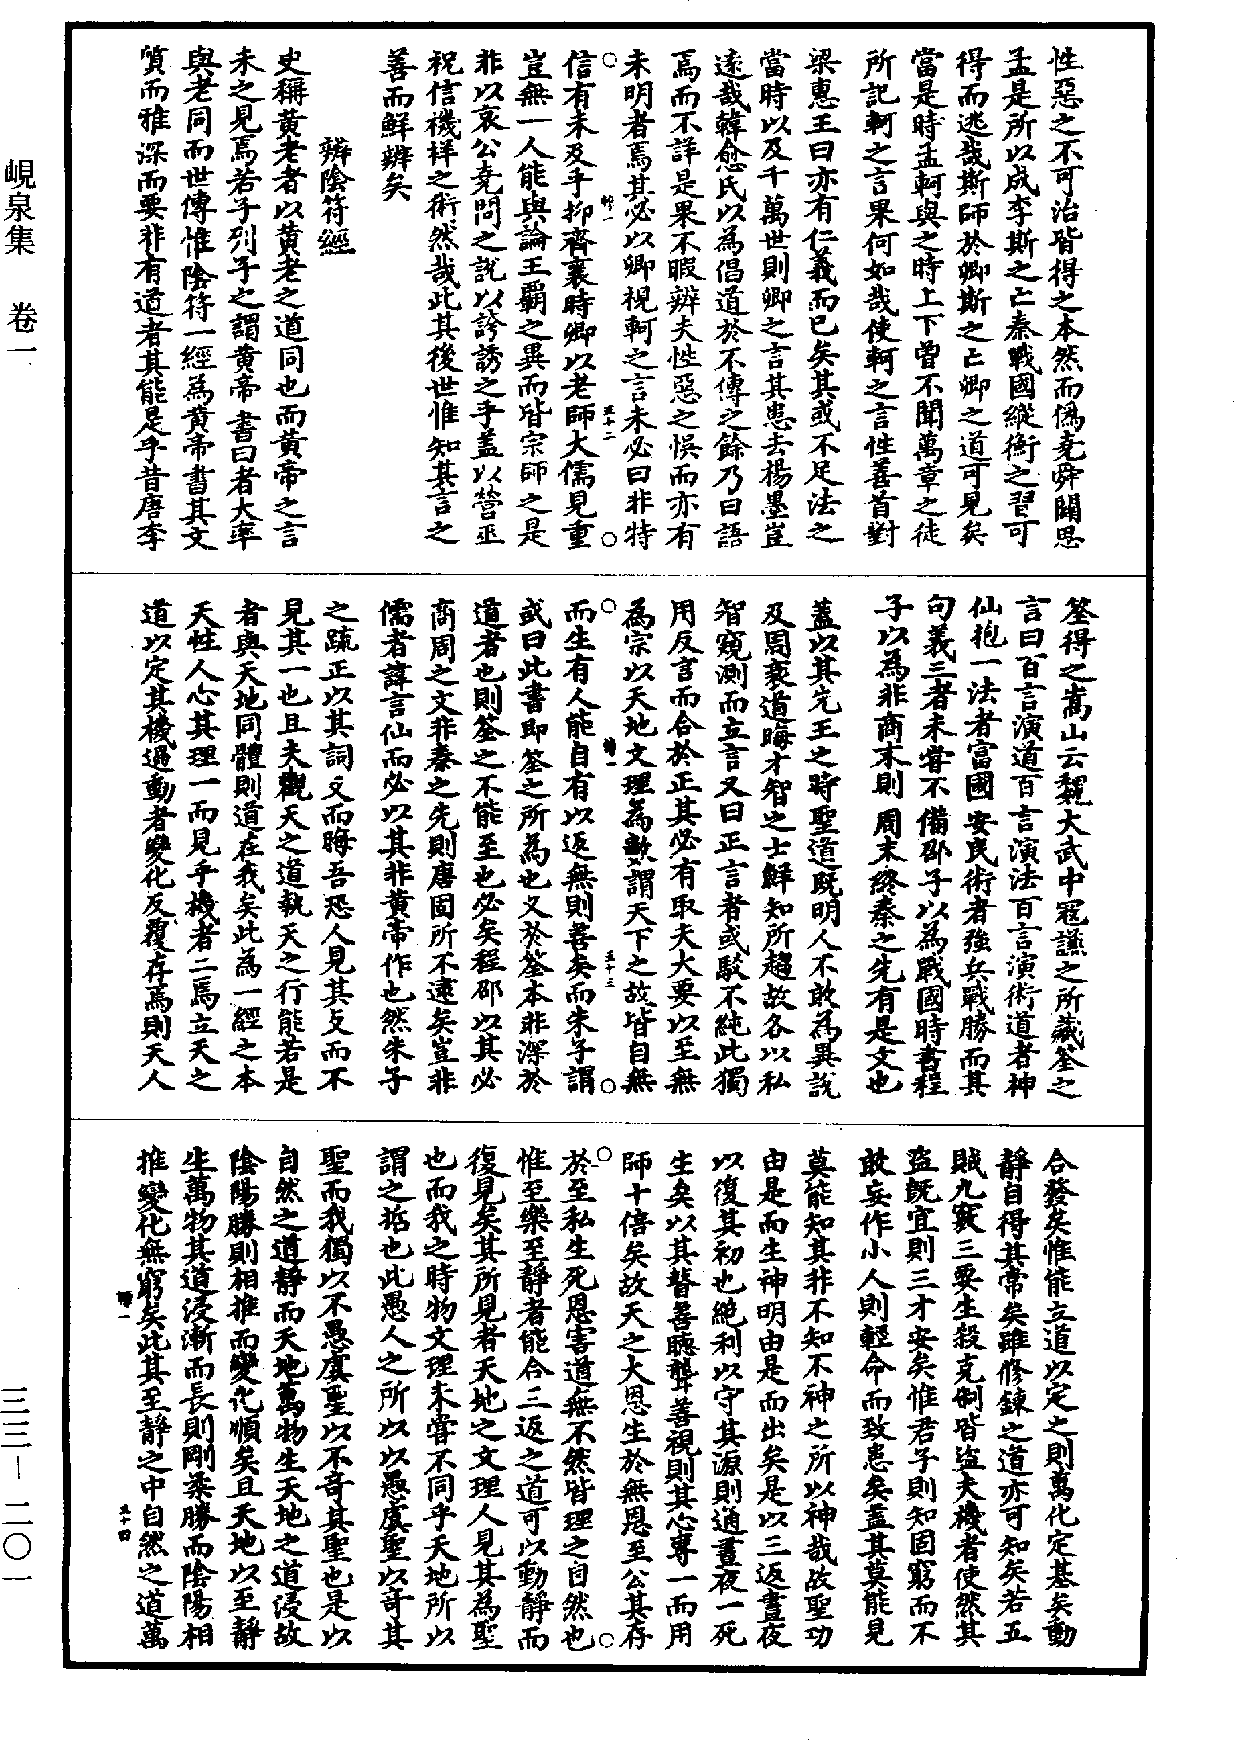 性惡之不可治皆得之本然而僞堯舜闢思
孟是所以成李斯之亡秦戰國縱衡之習可
得而逃哉斯師於卿斯之亡卿之道可見矣
當是時孟軻與之時上下曾不聞萬章之徒
所記軻之言果何如哉使軻之言性善首對
梁惠王曰亦有仁義而已矣其或不足法之
當時以及千萬世則卿之言其患去楊墨豈
遠哉韓愈氏以為倡道於不傳之餘乃曰語
焉而不詳是果不暇辨夫性惡之悞而亦有
未明者焉其必以卿視軻之言未必曰非特
信有未及乎抑齊襄時卿以老師大儒見重
豈無一人能與論王覇之異而皆宗師之是
非以哀公堯問之說以誇誘之乎盖以營巫
祝信禨祥之術然哉此其後世惟知其言之
善而鮮辨矣
辨陰符經
史稱黃老者以黃老之道同也而黃帝之言
未之見焉若子列子之謂黃帝書曰者大率
與老同而世傳惟陰符一經為黃帝書其文
質而雅深而要非有道者其能足乎昔唐李
筌得之嵩山云魏大武中寇謙之所藏筌之
言曰百言演道百言演法百言演術道者神
仙抱一法者富國安民術者強兵戰勝而其
句義三者未甞不備邵子以為戰國時書程
子以為非商末則周末終秦之先有是文也
蓋以其先王之時聖道既明人不敢為異說
及周衰道晦才智之士鮮知所趨故各以私
智窺測而立言又曰正言者或駁不純此獨
用反言而合於正其必有取夫大要以至無
為宗以天地文理為數謂天下之故皆自無
而生有人能自有以返無則善矣而朱子謂
或曰此書即筌之所為也又於筌本非深於
道者也則筌之不能至也必矣程邵以其必
商周之文非秦之先則唐固所不逮矣豈非
儒者諱言仙而必以其非黃帝作也然朱子
之疏正以其詞支而晦吾恐人見其攴而不
見其一也且夫觀天之道執天之行能若是
者與天地同體則道在我矣此為一經之本
天性人心其理一而見乎機者二焉立天之
道以定其機過動者變化反覆存焉則天人
合發矣惟能立道以定之則萬化定基矣動
靜自得其常矣雖修鍊之道亦可知矣若五
賊九竅三要生殺克制皆盜夫機者使然其
盜既宜則三才安矣惟君子則知固窮而不
敢妄作小人則輕命而致患矣蓋其莫能見
莫能知其非不知不神之所以神哉故聖功
由是而生神明由是而出矣是以三返晝夜
以復其初也絕利以守其源則通晝夜一死
生矣以其瞽善聽聾善視則其心專一而用
師十倍矣故天之大恩生於無恩至公其存
於至私生死恩害道無不然皆理之自然也
惟至樂至靜者能合三返之道可以動靜而
復見矣其所見者天地之文理人見其為聖
也而我之時物文理未甞不同乎天地所以
謂之哲也此愚人之所以以愚虞聖以奇其
聖而我獨以不愚虞聖以不奇其聖也是以
自然之道靜而天地萬物生天地之道浸故
陰陽勝則相推而變化順矣且天地以至靜
生萬物其道浸漸而長則剛柔勝而陰陽相
推變化無窮矣此其至靜之中自然之道萬
峴泉集 卷一
三三－二〇一